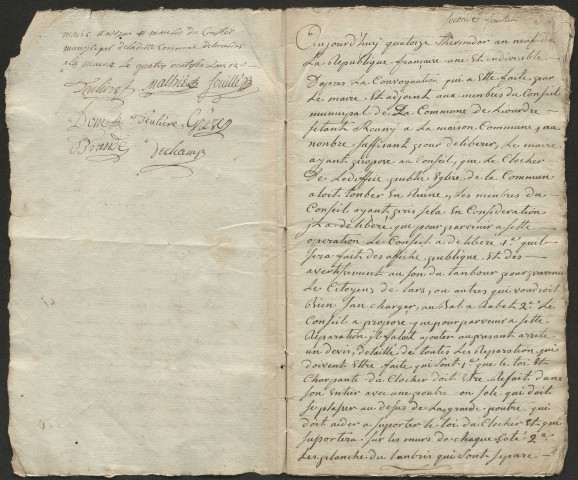 maire et adjoint et membres du Conseil
municipal de la ditte Commune de
a la mairie Le quatre
Mathieu fouillade
Deulière
Dechamp
second feuillet
Aujourd'huy quatorze Thermidor an neuf de
La République francaise une et indivisible
Dapres La Convoquation qui a Ette faite par
Le maire et adjoint aux membres du Conseil
municipal de La Commune de Liourdre
setant Reuny a La maison Commune, au
nonbre suffizant pour deliberer, Le maire
ayant propose au Conseil, que Le Clocher
De Lediffice publit Eglise de la Commun
aloit tonber En Ruine, Les menbres du
Conseil ayant pris sela En Consideration
il a délibéré, que pour parvenir a sette
operation Le Conseil a délibéré 1º quil
sera fait des affiche publique Et des
avertissement au son du tanbour pour prevenir
Le Citoyens de lars, ou autres qui voudroit
Bien san charger, au Rabat a Rabet 2º Le
Conseil a propose que pour parvenir a sette
Reparation il faloit ajouter au present arrete
un devis, détaille de toutes Les Reparation qui
doivent Etre faite qui sont 1º que le toi Et
Charpante du Clocher doit Etre defait dans
son Entier avec une poutre ou sole qui doit
se plaser au desus de La grande poutre qui
doit aider a suporter le toi du Clocher Et qui
suportera sur les murs de chaque Coté 2º
Les planche du tanbris qui sont separe